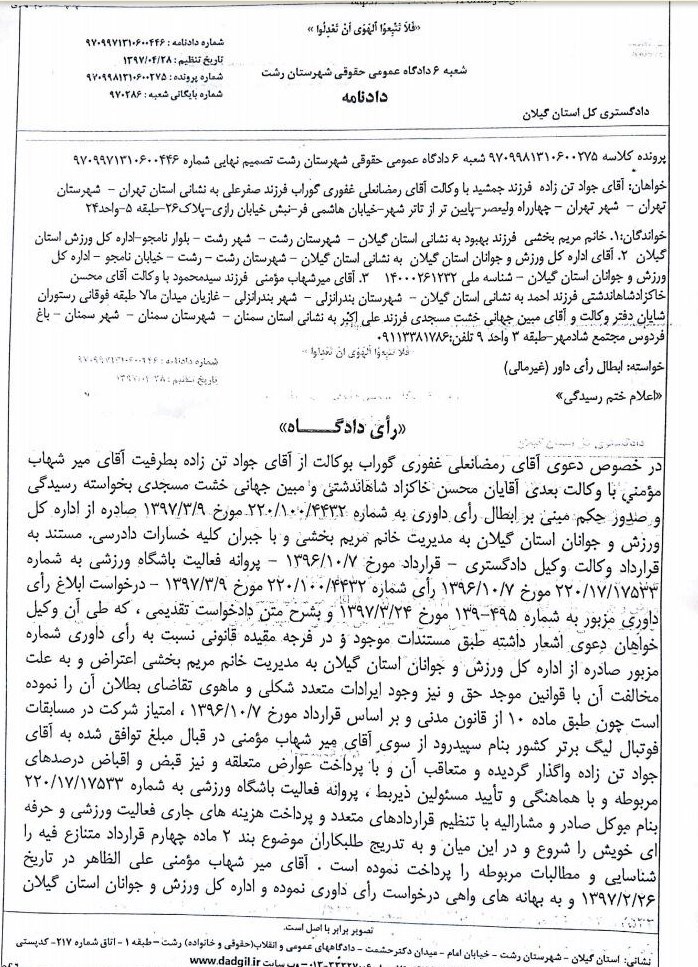 «فَلَا تَتَّبِعُوا الْهَوَىٰ أَنْ تَعْدِلُوا»
شماره دادنامه : ۹۷۰۹۹۷۱۳۱۰۶۰۰۴۴۶
تاریخ تنظیم : ۱۳۹۷/۰۴/۲۸
شماره پرونده : ۹۷۰۹۹۸۱۳۱۰۶۰۰۲۷۵
شماره بایگانی شعبه : ۹۷۰۲۸۶
شعبه ۶ دادگاه عمومی حقوقی شهرستان رشت
دادنامه
دادگستری کل استان گیلان
پرونده کلاسه ۹۷۰۹۹۸۱۳۱۰۶۰۰۲۷۵ شعبه ۶ دادگاه عمومی حقوقی شهرستان رشت تصمیم نهایی شماره ۹۷۰۹۹۷۱۳۱۰۶۰۰۴۴۶
خواهان: آقای جواد تن زاده فرزند جمشید با وکالت آقای رمضانعلی غفوری گوراب فرزند صفرعلی به نشانی استان تهران – شهرستان
تهران – شهر تهران – چهارراه ولیعصر-پایین تر از تاتر شهر-خیابان هاشمی فر-نبش خیابان رازی-پلاک۲۶-طبقه ۵-واحد۲۴
خواندگان:۱. خانم مریم بخشی فرزند بهبود به نشانی استان گیلان – شهرستان رشت – شهر رشت – بلوار نامجو-اداره کل ورزش استان
گیلان ۲. آقای اداره کل ورزش و جوانان استان گیلان به نشانی استان گیلان – شهرستان رشت – رشت – خیابان نامجو – اداره کل
ورزش و جوانان استان گیلان – شناسه ملی ۱۴۰۰۰۲۶۱۲۳۲ ۳. آقای میرشهاب مؤمنی فرزند سیدمحمود با وکالت آقای محسن
خاکزادشاهاندشتی فرزند احمد به نشانی استان گیلان – شهرستان بندرانزلی – شهر بندرانزلی – غازیان میدان مالا طبقه فوقانی رستوران
شایان دفتر وکالت و آقای مبین جهانی خشت مسجدی فرزند علی اکبر به نشانی استان سمنان – شهرستان سمنان – شهر سمنان – باغ
فردوس مجتمع شادمهر-طبقه ۳ واحد ۹ تلفن:۰۹۱۱۳۳۸۱۷۸۶
«فَلَا تَتَّبِعُوا الْهَوَىٰ أَنْ تَعْدِلُوا»
خواسته: ابطال رأی داور (غیرمالی)
«اعلام ختم رسیدگی»
«رأی دادگـــــاه»
در خصوص دعوی آقای رمضانعلی غفوری گوراب بوکالت از آقای جواد تن زاده بطرفیت آقای میر شهاب
مؤمنی با وکالت بعدی آقایان محسن خاکزاد شاهاندشتی و مبین جهانی خشت مسجدی بخواسته رسیدگی
و صدور حکم مبنی بر ابطال رأی داوری به شماره ۲۲۰/۱۰۰/۴۴۳۲ مورخ ۱۳۹۷/۳/۹ صادره از اداره کل
ورزش و جوانان استان گیلان به مدیریت خانم مریم بخشی و با جبران کلیه خسارات دادرسی. مستند به
قرارداد وکالت وکیل دادگستری – قرارداد مورخ ۱۳۹۶/۱۰/۷ – پروانه فعالیت باشگاه ورزشی به شماره
۲۲۰/۱۷/۱۷۵۳۳ مورخ ۱۳۹۶/۱۰/۷ رأی شماره ۲۲۰/۱۰۰/۴۴۳۲ مورخ ۱۳۹۷/۳/۹ – درخواست ابلاغ رأی
داوری مزبور به شماره ۴۹۵-۱۳۹ مورخ ۱۳۹۷/۳/۲۴ و بشرح متن دادخواست تقدیمی ، که طی آن وکیل
خواهان دعوی اشعار داشته طبق مستندات موجود و در فرجه مقیده قانونی نسبت به رأی داوری شماره
مزبور صادره از اداره کل ورزش و جوانان استان گیلان به مدیریت خانم مریم بخشی اعتراض و به علت
مخالفت آن با قوانین موجد حق و نیز وجود ایرادات متعدد شکلی و ماهوی تقاضای بطلان آن را نموده
است چون طبق ماده ۱۰ از قانون مدنی و بر اساس قرارداد مورخ ۱۳۹۶/۱۰/۷ ، امتیاز شرکت در مسابقات
فوتبال لیگ برتر کشور بنام سپیدرود از سوی آقای میر شهاب مؤمنی در قبال مبلغ توافق شده به آقای
جواد تن زاده واگذار گردیده و متعاقب آن و با پرداخت عوارض متعلقه و نیز قبض و اقباض درصدهای
مربوطه و با هماهنگی و تأیید مسئولین ذیربط ، پروانه فعالیت باشگاه ورزشی به شماره ۲۲۰/۱۷/۱۷۵۳۳
بنام موکل صادر و مشارالیه با تنظیم قراردادهای متعدد و پرداخت هزینه های جاری فعالیت ورزشی و حرفه
ای خویش را شروع و در این میان و به تدریج طلبکاران موضوع بند ۲ ماده چهارم قرارداد متنازع فیه را
شناسایی و مطالبات مربوطه را پرداخت نموده است . آقای میر شهاب مؤمنی علی الظاهر در تاریخ
۱۳۹۷/۲/۲۶ و به بهانه های واهی درخواست رأی داوری نموده و اداره کل ورزش و جوانان استان گیلان
تصویر برابر با اصل است.
نشانی: استان گیلان – شهرستان رشت – خیابان امام – میدان دکترحشمت – دادگاههای عمومی و انقلاب(حقوقی و خانواده) رشت – طبقه ۱ - اتاق شماره ۲۱۷- کدپستی
وب سایت www.dadgil.ir